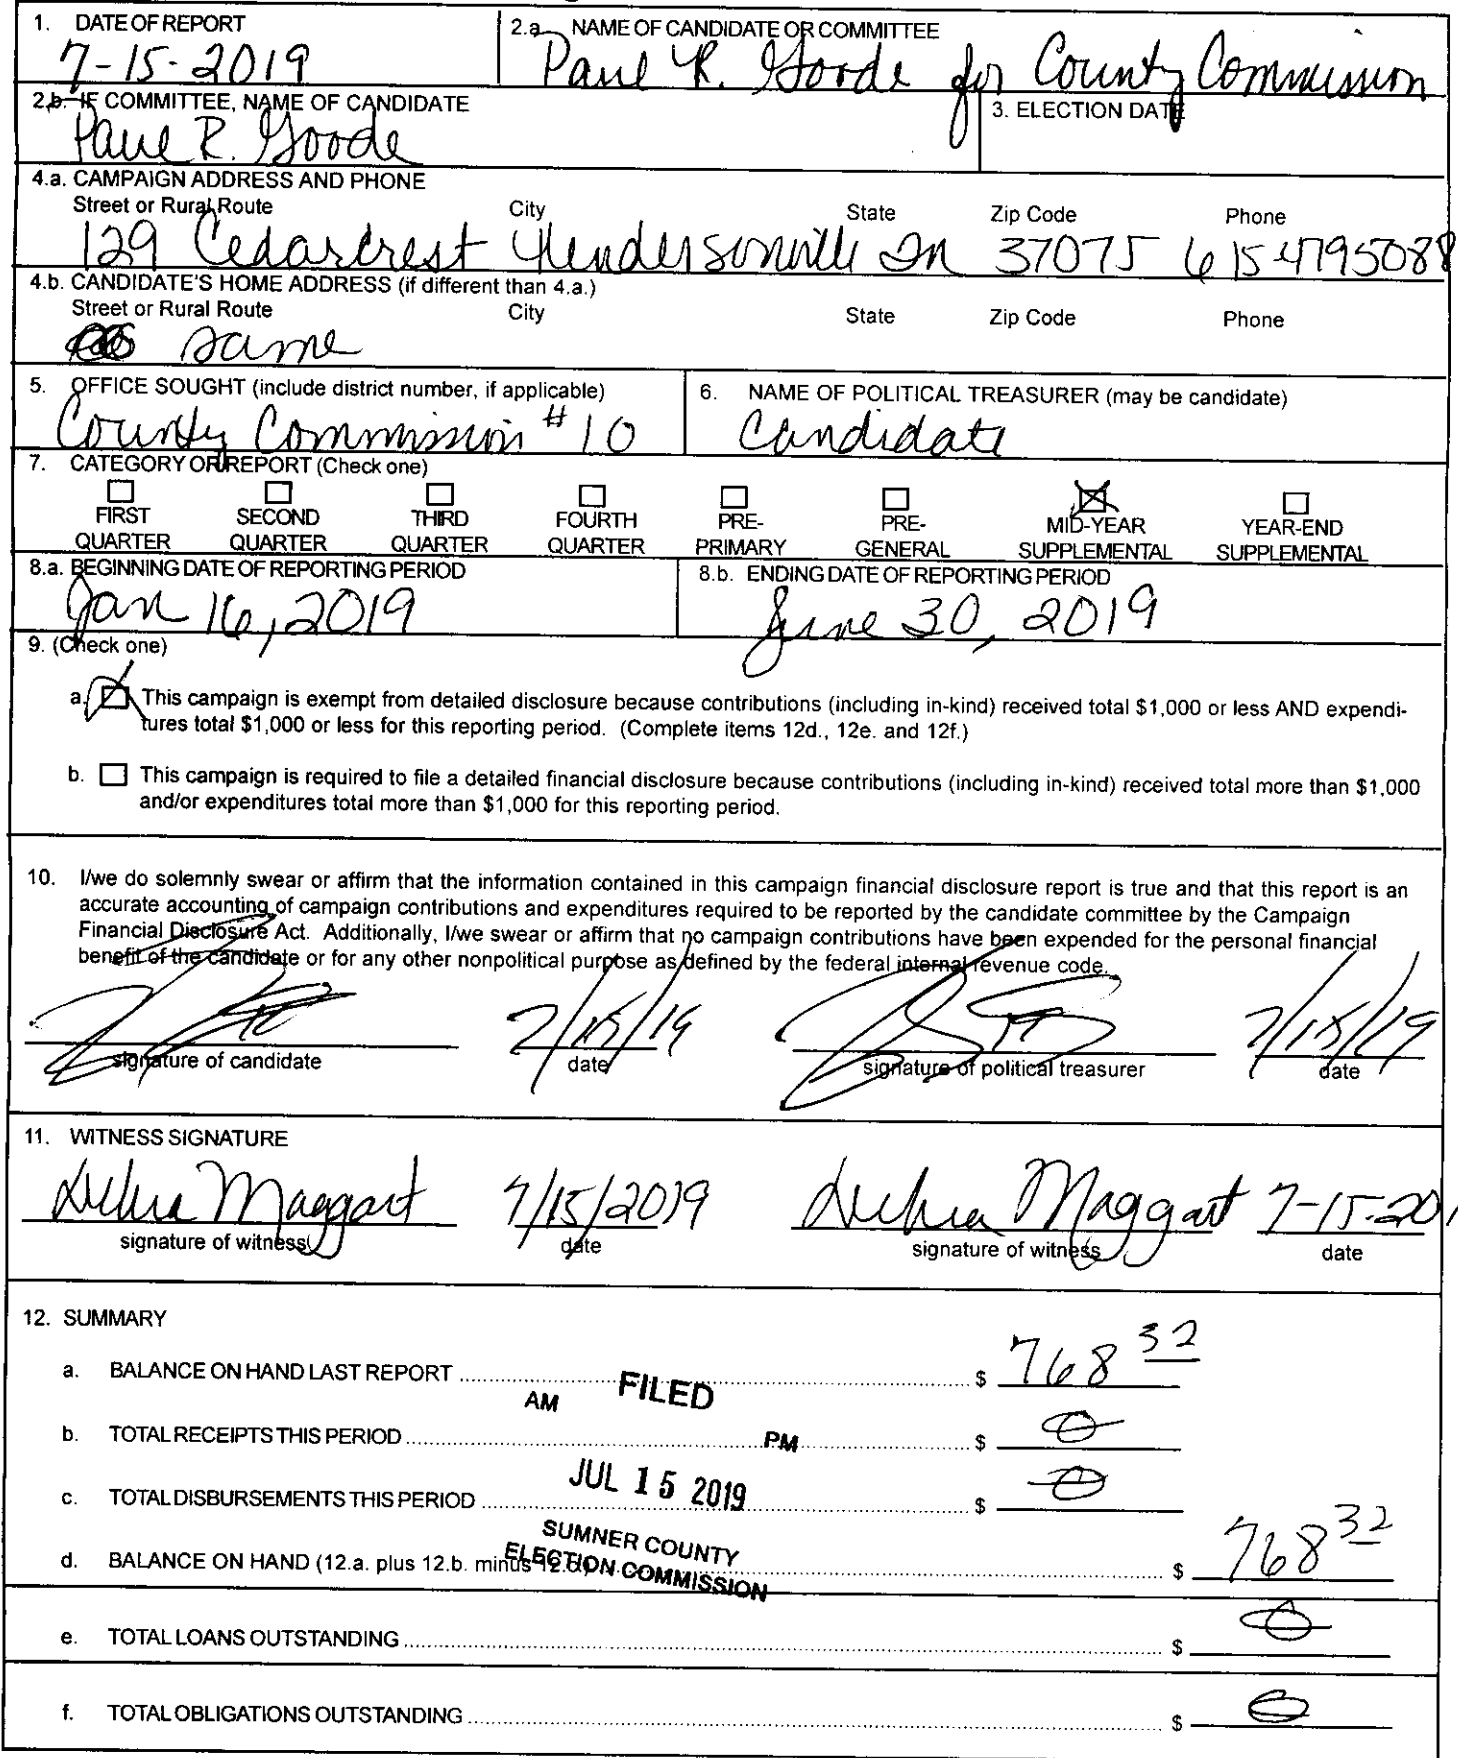 1. DATE OF REPORT
7-15-2019
2.a. NAME OF CANDIDATE OR COMMITTEE
Paul R. Goode for County Commission
2.b. IF COMMITTEE, NAME OF CANDIDATE
Paul R. Goode
3. ELECTION DATE
4.a. CAMPAIGN ADDRESS AND PHONE
Street or Rural Route City State Zip Code Phone
129 Cedarcrest Hendersonville Tn 37075 6154795088
4.b. CANDIDATE'S HOME ADDRESS (if different than 4.a.)
Street or Rural Route City State Zip Code Phone
same
5. OFFICE SOUGHT (include district number, if applicable)
County Commission #10
6. NAME OF POLITICAL TREASURER (may be candidate)
Candidate
7. CATEGORY OR REPORT (Check one)
FIRST QUARTER
SECOND QUARTER
THIRD QUARTER
FOURTH QUARTER
PRE-PRIMARY
PRE-GENERAL
MID-YEAR SUPPLEMENTAL
YEAR-END SUPPLEMENTAL
8.a. BEGINNING DATE OF REPORTING PERIOD
Jan 16, 2019
8.b. ENDING DATE OF REPORTING PERIOD
June 30, 2019
9. (Check one)
a. This campaign is exempt from detailed disclosure because contributions (including in-kind) received total $1,000 or less AND expendi-
tures total $1,000 or less for this reporting period. (Complete items 12d., 12e. and 12f.)
b. This campaign is required to file a detailed financial disclosure because contributions (including in-kind) received total more than $1,000
and/or expenditures total more than $1,000 for this reporting period.
10. I/we do solemnly swear or affirm that the information contained in this campaign financial disclosure report is true and that this report is an
accurate accounting of campaign contributions and expenditures required to be reported by the candidate committee by the Campaign
Financial Disclosure Act. Additionally, I/we swear or affirm that no campaign contributions have been expended for the personal financial
benefit of the candidate or for any other nonpolitical purpose as defined by the federal internal revenue code.
7/15/19 7/15/19
signature of candidate date signature of political treasurer date
11. WITNESS SIGNATURE
Maggart 7/15/2019 Maggart 7-15-201
signature of witness date signature of witness date
12. SUMMARY
a. BALANCE ON HAND LAST REPORT $ 768 32
AM FILED
b. TOTAL RECEIPTS THIS PERIOD $ 0
PM
JUL 15 2019
c. TOTAL DISBURSEMENTS THIS PERIOD $ 0
SUMNER COUNTY
ELECTION COMMISSION
d. BALANCE ON HAND (12.a. plus 12.b. minus 12.c.) $ 768 32
e. TOTAL LOANS OUTSTANDING $ 0
f. TOTAL OBLIGATIONS OUTSTANDING $ 0